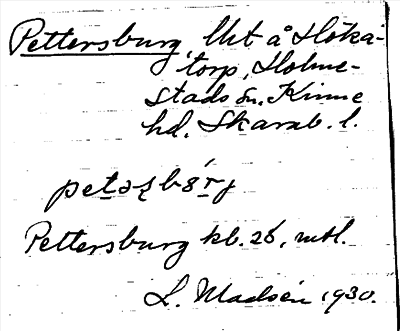 Pettersburg, lht å Höka-
torp, Holme-
stads sn. Kinne
hd. Skarab. l.
Pettersburg kb. 26, mtl.
L. Madsén 1930.